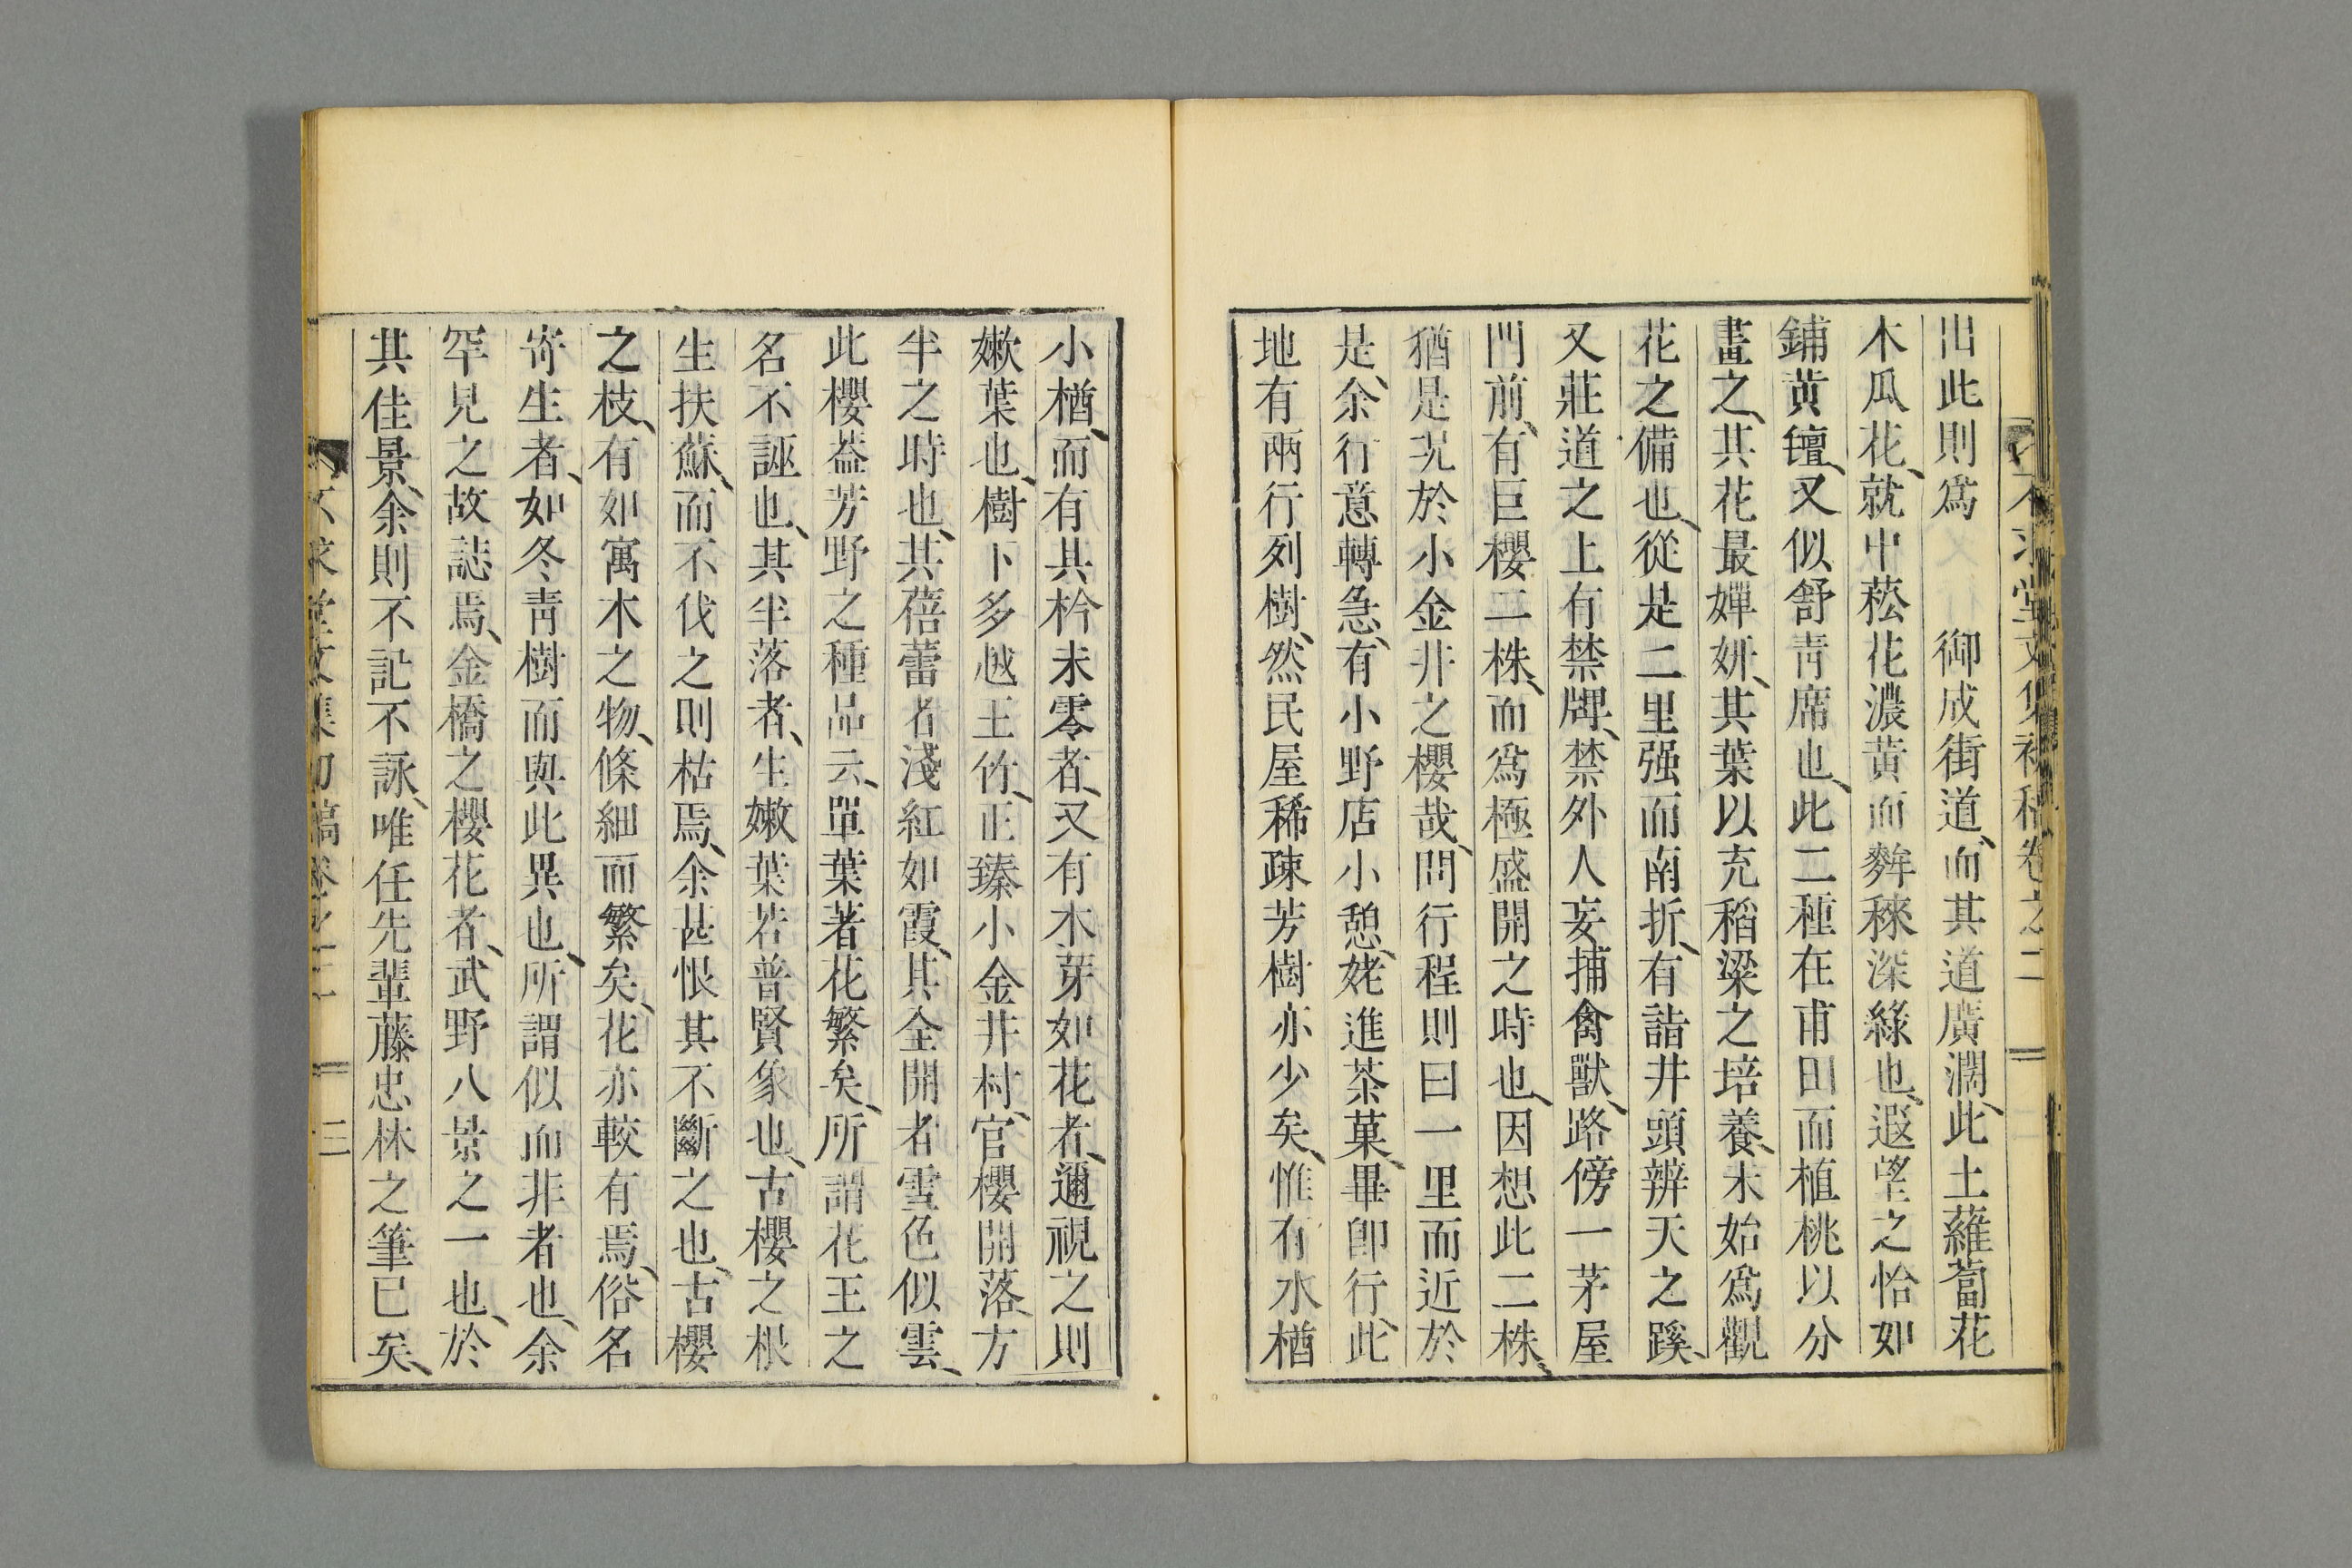 出此則爲　御成街道、而其道廣濶、此土蘿蔔花
木瓜花、就中菘花濃黄而麰䅘深綠也、遐望之恰如
鋪黄氊、又似舒靑席也、此二種在甫田而植桃以分
畫之、其花最嬋妍、其葉以充稻粱之培養、未始爲觀
花之備也、從是二里强而南折、有詣井頭辨天之蹊、
又莊道之上有禁牌、禁外人妄捕禽獸、路傍一茅屋
門前、有巨櫻二株、而爲極盛開之時也、因想此二株、
猶是況於小金井之櫻哉、問行程則曰一里而近於
是、余行意轉急、有小野店小憩、姥進茶菓、畢卽行、此
地有兩行列樹、然民屋稀疎芳樹亦少矣、惟有水楢
小楢、而有其枔未零者、又有木芽如花者、邇視之則
嫩葉也、樹下多越王竹、正臻小金井村、官櫻開落方
半之時也、其蓓蕾者淺紅如霞、其全開者雪色似雲、
此櫻葢芳野之種品云、單葉著花繁矣、所謂花王之
名不誣也、其半落者、生嫩葉若普賢象也、古櫻之根
生扶蘇、而不伐之則枯焉、余甚恨其不斷之也、古櫻
之枝、有如寓木之物、條細而繁矣、花亦較有焉、俗名
寄生者、如冬靑樹而與此異也、所謂似而非者也、余
罕見之故誌焉、金橋之櫻花者、武野八景之一也、於
其佳景、余則不記不詠、唯任先輩藤忠林之筆已矣、
三